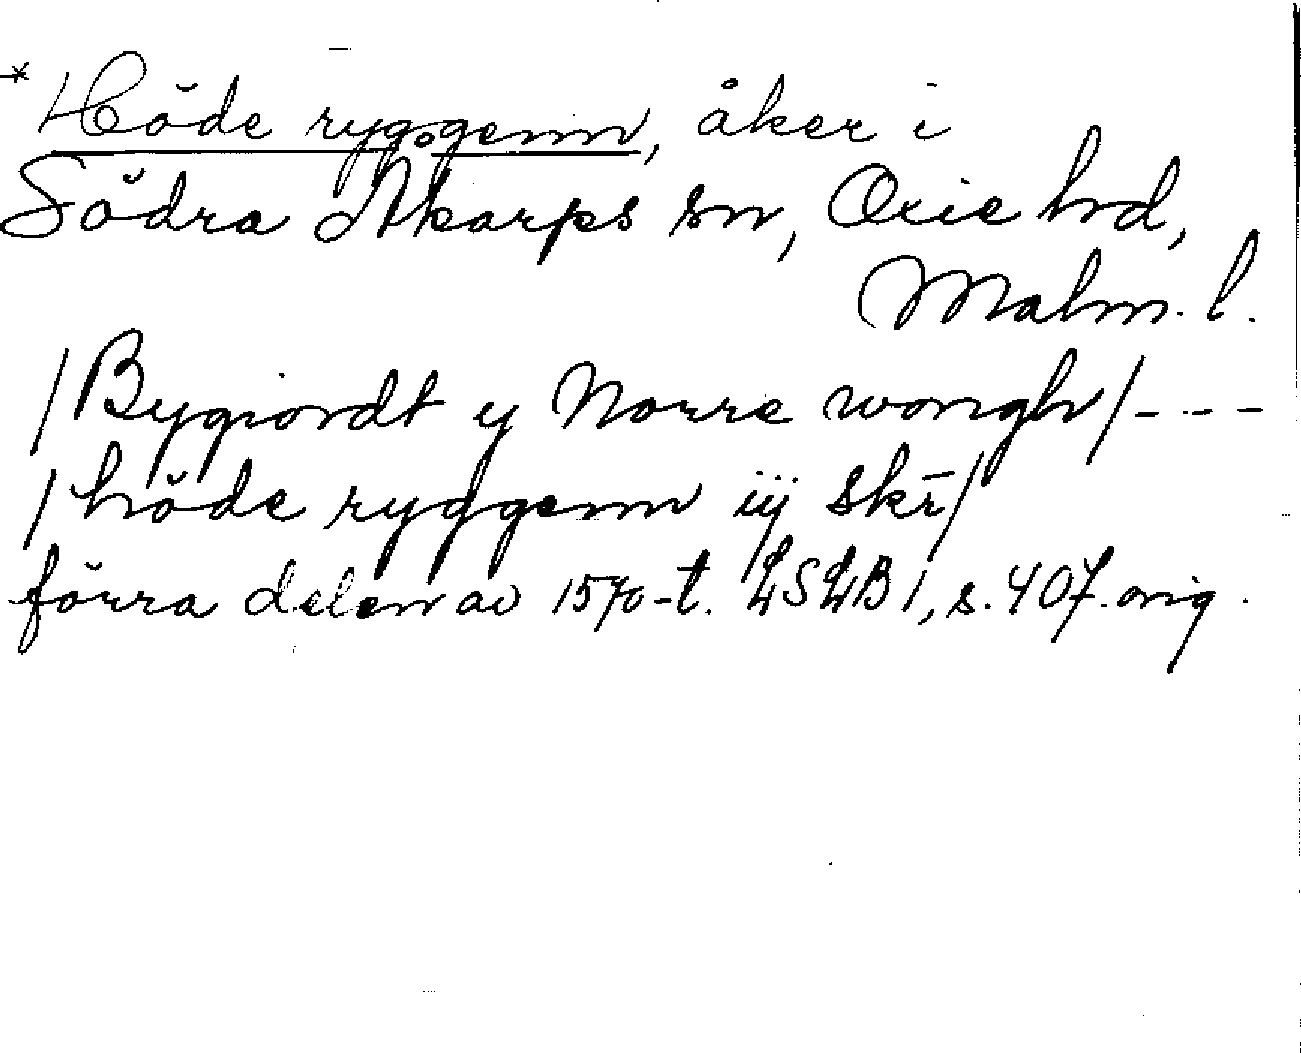 * Höde ryggenn, åker i
Södra Åkarps sn, Oxie hd,
Malm. l.
/Bygiordt y Norre wongh/---
/höde ryggenn iij skr̄/
förra delen av 1570-t. LSLB 1, s. 407. orig.